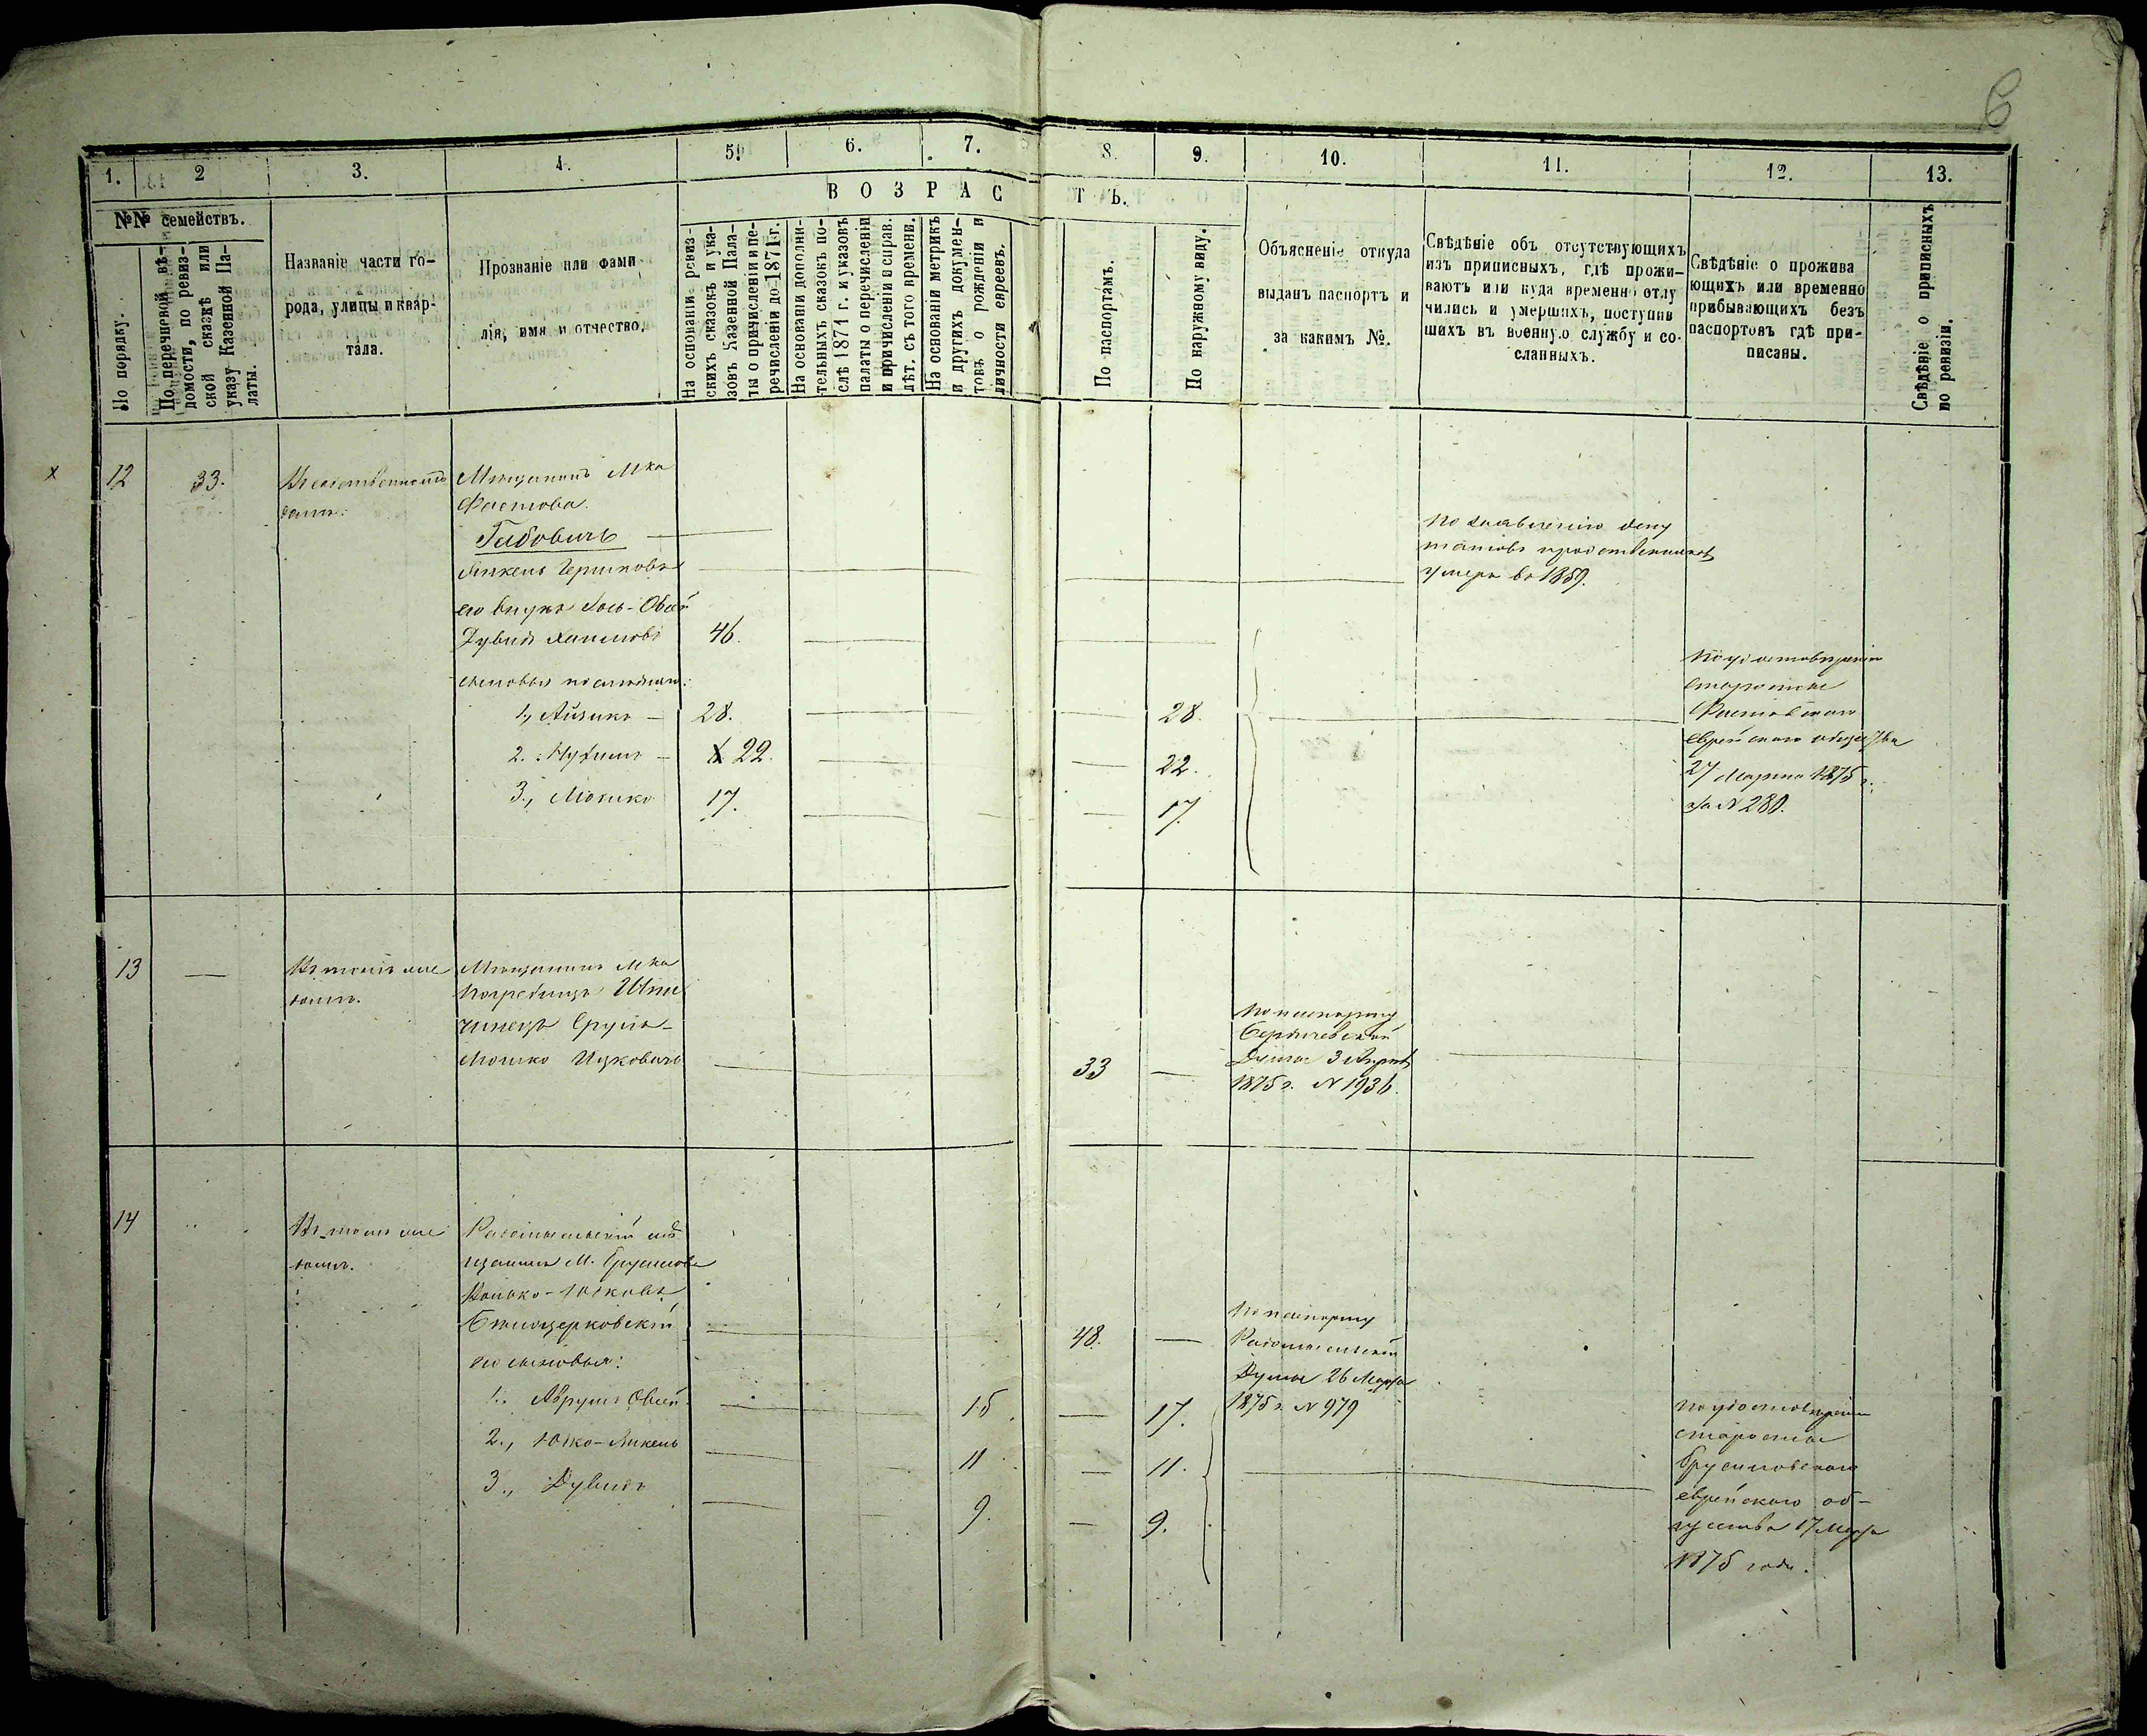 6
1.
2
3.
4.
5.
6.
7.
8.
9.
10.
11.
12.
13.
№№ семействъ.
ВОЗРАСТЪ.
По порядку.
По перечневой вѣ-
домости, по ревиз-
ской сказкѣ или
указу Казенной Па-
латы.
Названіе части го-
рода, улицы и квар-
тала.
Прозваніе или фами
лія, имя и отчество.
На основаніи ревиз-
скихъ сказокъ и ука-
зовъ Казенной Пала-
ты о причисленіи и пе-
речисленіи до 1871 г.
На основаніи дополни-
тельныхъ сказокъ по-
слѣ 1871 г. и указовъ
палаты о перечисленіи
и причисленіи и справ.
лѣт. съ того времени.
На основаніи метрикъ
и другихъ докумен-
товъ о рожденіи и
личности евреевъ.
По паспортамъ.
По наружному виду.
Объясненіе откуда
выданъ паспортъ и
за какимъ №.
Свѣдѣніе объ отсутствующихъ
изъ приписныхъ, гдѣ прожи-
ваютъ или куда временно отлу
чились и умершихъ, поступив
шихъ въ военную службу и со-
сланныхъ.
Свѣдѣніе о прожива
ющихъ или временно
прибывающихъ безъ
паспортовъ гдѣ при-
писаны.
Свѣдѣніе о приписныхъ
по ревизіи.
х 12
33.
домѣ.
Мѣщанинъ М-ка
Фастова
Габовичъ
Янкель Гершковъ
его внукъ Іось-Овсей
Дувидъ Хаимовъ 46.
сыновья послѣдняго:
1., Айзикъ — 28. 28.
2. Нухимъ — 22. 22.
3., Мошко 17. 17.
По заявленію депу
татовъ
умеръ въ 1859.
По удостовѣренію
старосты
Фастовскаго
еврейскаго общества
27 Марта 1875 г.
за N 280.
13 —
Въ томъ же
домѣ.
Мѣщанинъ М-ка
Погребищъ
Сруль-
Мошко Ицковичъ
33 —
По паспорту
Бердичевской
Думы 3 Апрѣля
1875 г. N 1936.
14
Въ томъ же
домѣ.
Радомысльскій мѣ
щанинъ М. Брусилова
Юсковъ
Бѣлоцерковскій
его сыновья:
1., Аврумъ Овсей 15. 17.
2., Юско-Янкель 11 11.
3., Дувидъ 9. 9.
48. —
По паспорту
Радомысльской
Думы 26 Марта
1875 г. N 979
По удостовѣренію
старосты
Брусиловскаго
еврейскаго об-
щества 17 Марта
1875 года.